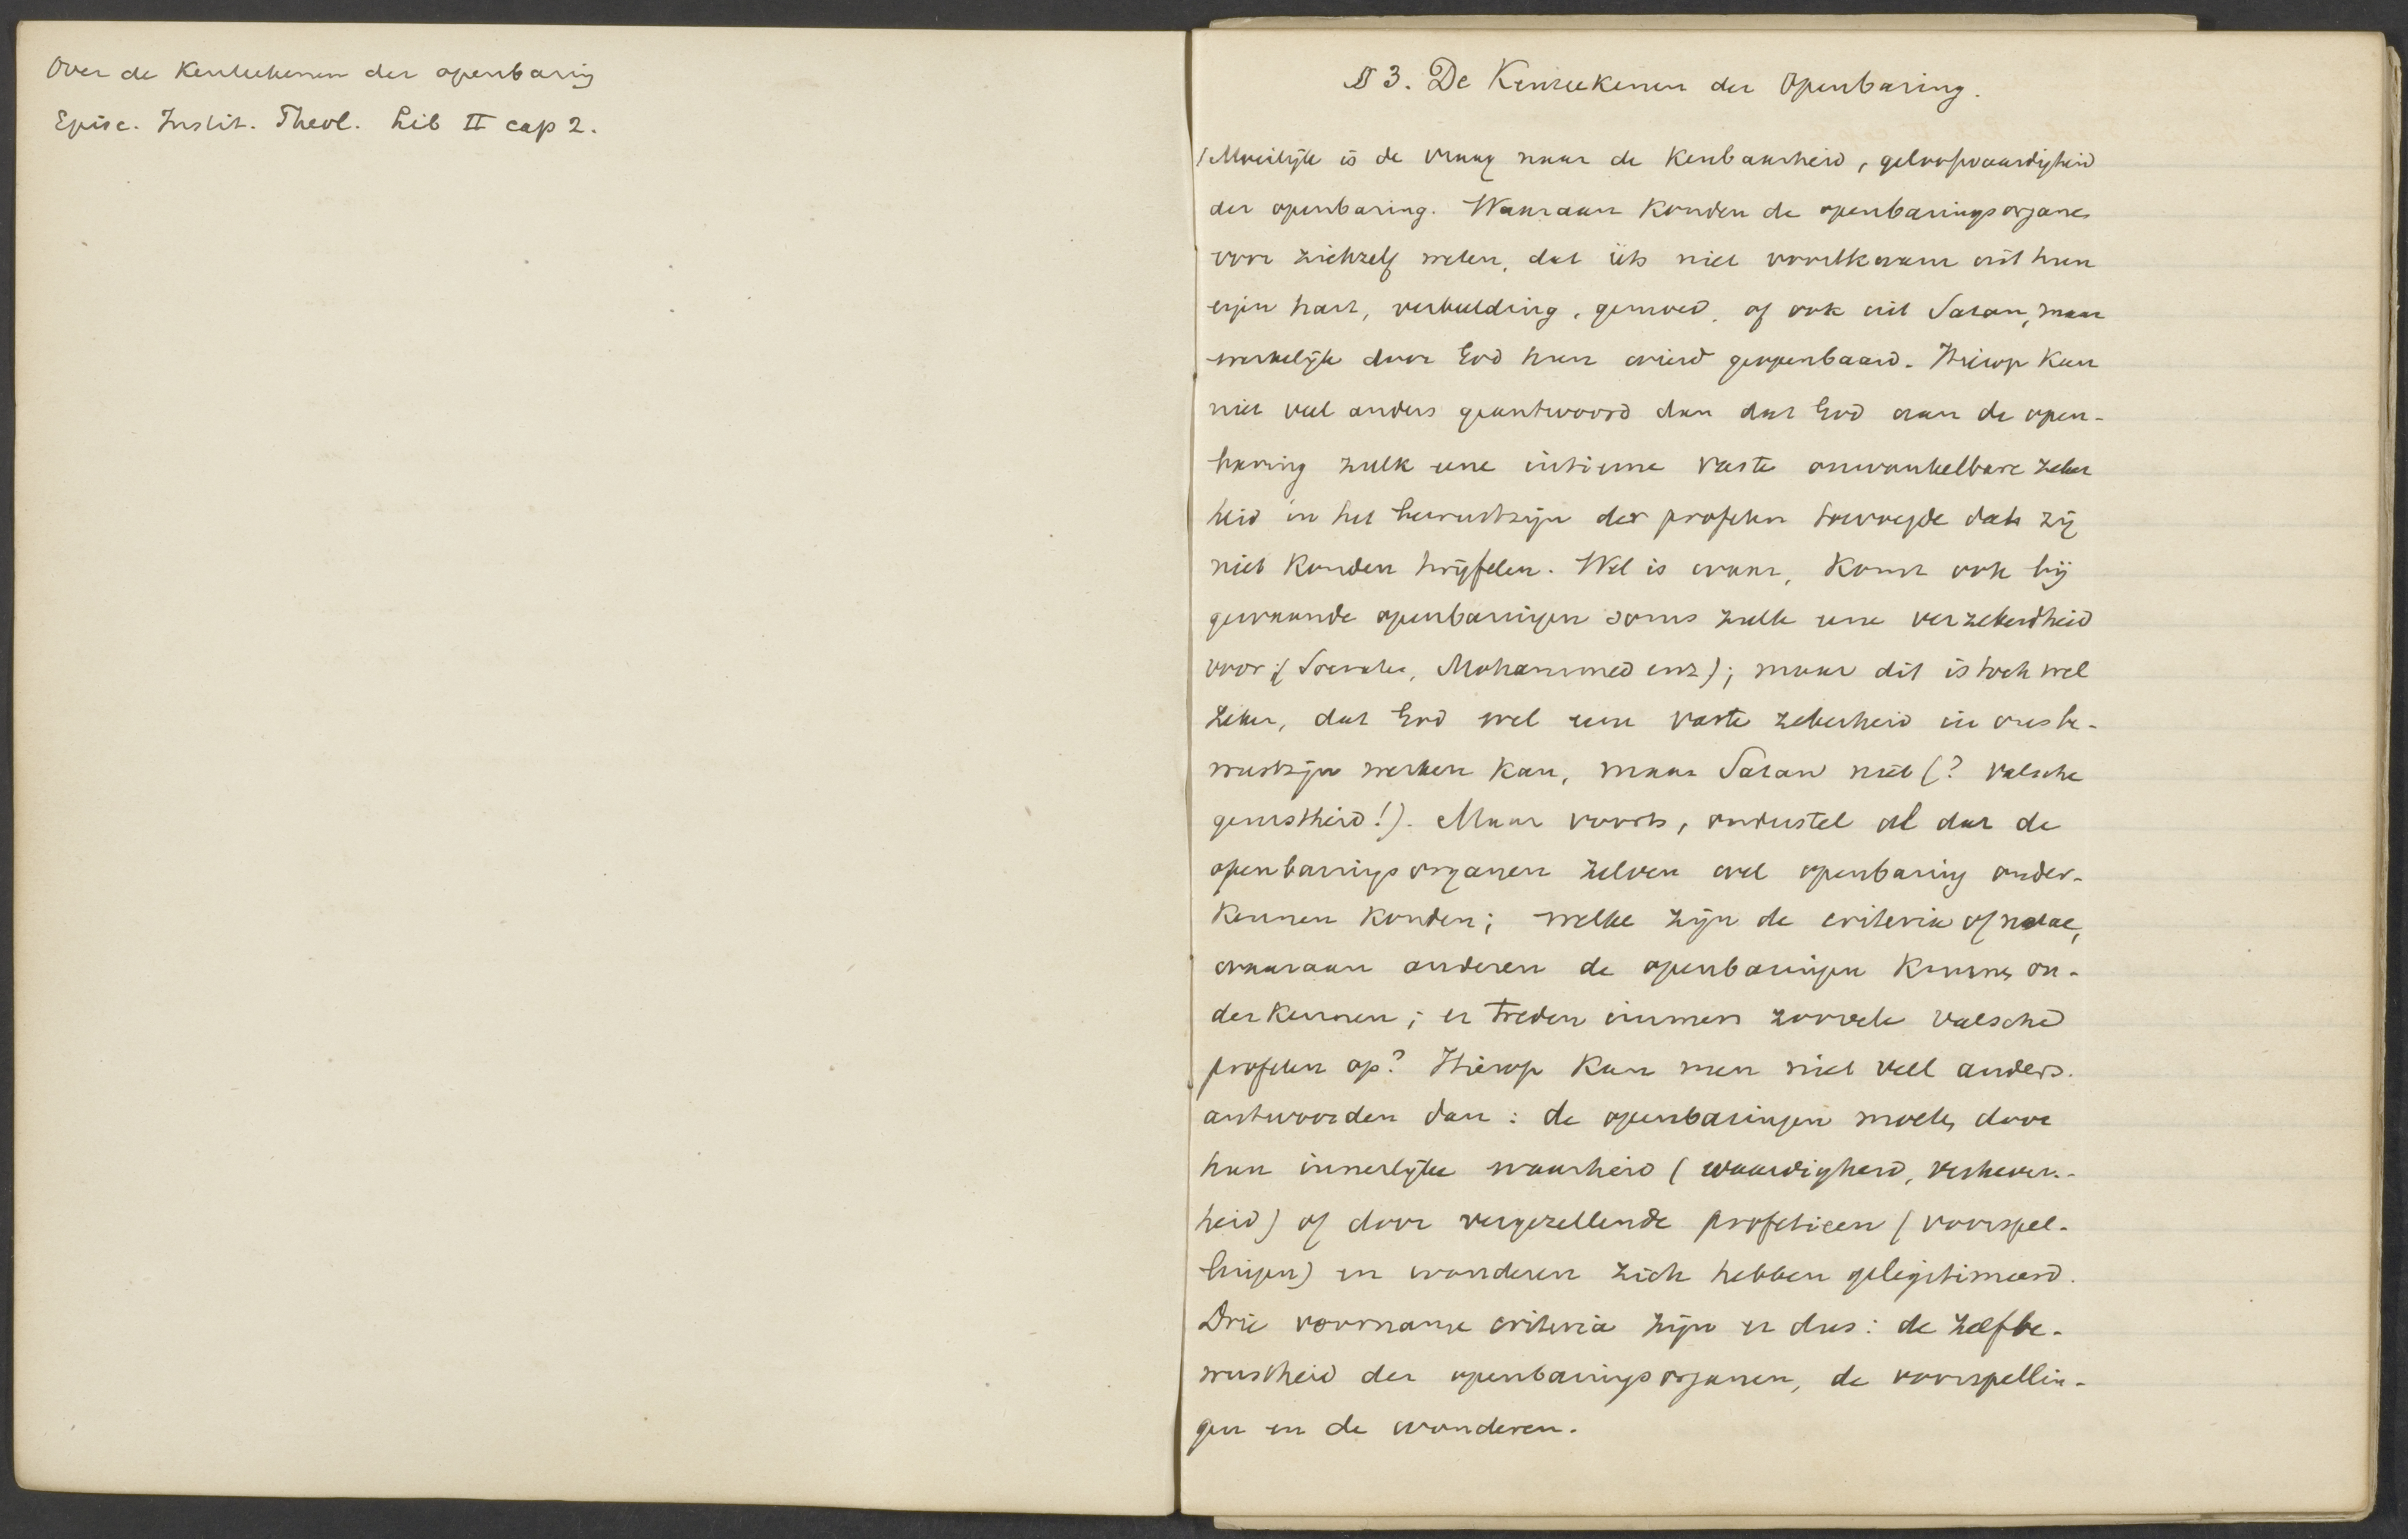 Over de Kenteekenen der openbaring
Episc. Instit. Theol. Lib II cap 2.
§ 3. De Kenteekenen der Openbaring.
(Moeilijk is de vraag naar de Kenbaarheid, geloofwaardigheid
der openbaring. Waaraan konden de openbaringsorganen
voor zichzelf weten, dat iets niet voortkwam uit hun
eigen hart, verbeelding, gemoed, of ook uit Satan, maar
werkelijk door God hun wierd geopenbaard. Hierop kan
niet veel anders geantwoord dan dat God aan de open-
baring zulk eene intieme vaste onwankelbare zeker
heid in het bewustzijn der profeten toevoegde dat zij
niet konden twijfelen. Wel is waar, komt ook bij
gewaande openbaringen soms zulk eene verzekerdheid
voor (Socrates, Mohammed enz); maar dit is toch wel
zeker, dat God wel een vaste zekerheid in ons be-
wustzijn werken kan, maar Satan niet (? valsche
gerustheid!). Maar voorts, ondersteld al dat de
openbaringsorganen zelven wel openbaring onder-
kennen konden; welke zijn de criteria of notae,
waaraan anderen de openbaringen kunnen on-
derkennen; er treden immers zoovele valsche
profeten op? Hierop kan men niet veel anders
antwoorden dan: de openbaringen moeten door
hun innerlijke waarheid (waardigheid, verheven-
heid) of door vergezellende profetieën (voorspel-
lingen) en wonderen zich hebben gelegitimeerd.
Drie voorname criteria zijn er dus: de zelfbe-
wustheid der openbaringsorganen, de voorspellin-
gen en de wonderen.